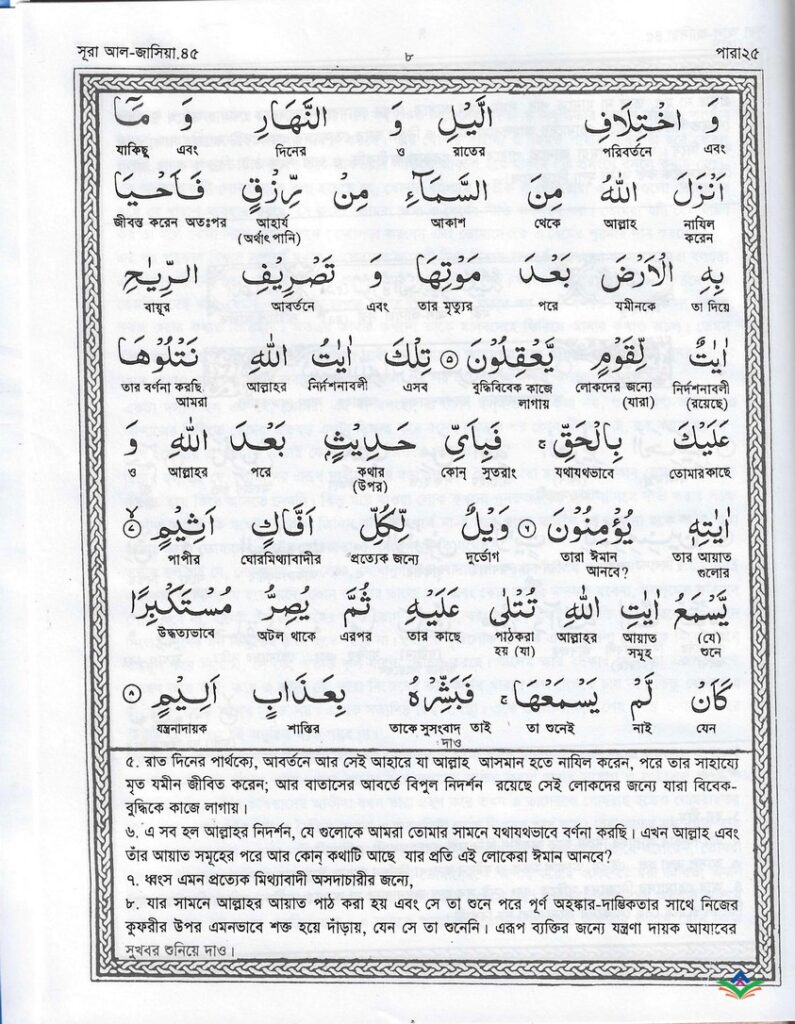 সূরা আল-জাসিয়া.৪৫ ৮ পারা২৫
وَ اخْتِلَافِ الَّيْلِ وَ النَّهَارِ وَ مَآ
যাকিছু এবং দিনের ও রাতের পরিবর্তনে এবং
اَنْزَلَ اللّٰهُ مِنَ السَّمَآءِ مِنْ رِّزْقٍ فَاَحْيَا
জীবন্ত করেন অতঃপর আহার্য আকাশ থেকে আল্লাহ নাযিল
(অর্থাৎ পানি) করেন
بِهِ الْاَرْضَ بَعْدَ مَوْتِهَا وَ تَصْرِيْفِ الرِّيٰحِ
বায়ুর আবর্তনে এবং তার মৃত্যুর পরে যমীনকে তা দিয়ে
اٰيٰتٌ لِّقَوْمٍ يَّعْقِلُوْنَ ۝٥ تِلْكَ اٰيٰتُ اللّٰهِ نَتْلُوْهَا
তার বর্ণনা করছি আল্লাহর নিদর্শনাবলী এসব বুদ্ধিবিবেক কাজে লোকদের জন্যে নিদর্শনাবলী
আমরা লাগায় (যারা) (রয়েছে)
عَلَيْكَ بِالْحَقِّ ۚ فَبِاَيِّ حَدِيْثٍۭ بَعْدَ اللّٰهِ وَ
ও আল্লাহর পরে কথার কোন্ সুতরাং যথাযথভাবে তোমার কাছে
(উপর)
اٰيٰتِهٖ يُؤْمِنُوْنَ ۝٦ وَيْلٌ لِّكُلِّ اَفَّاكٍ اَثِيْمٍ ۝٧
পাপীর ঘোরমিথ্যাবাদীর প্রত্যেক জন্যে দুর্ভোগ তারা ঈমান তাঁর আয়াত
আনবে? গুলোর
يَّسْمَعُ اٰيٰتِ اللّٰهِ تُتْلٰى عَلَيْهِ ثُمَّ يُصِرُّ مُسْتَكْبِرًا
উদ্ধত্যভাবে অটল থাকে এরপর তার কাছে পাঠকরা আল্লাহর আয়াত (যে)
হয় (যা) সমূহ শুনে
كَاَنْ لَّمْ يَسْمَعْهَا فَبَشِّرْهُ بِعَذَابٍ اَلِيْمٍ ۝٨
যন্ত্রনাদায়ক শাস্তির তাকে সুসংবাদ তাই তা শুনেই নাই যেন
দাও
৫. রাত দিনের পার্থক্যে, আবর্তনে আর সেই আহারে যা আল্লাহ আসমান হতে নাযিল করেন, পরে তার সাহায্যে
মৃত যমীন জীবিত করেন; আর বাতাসের আবর্তে বিপুল নিদর্শন রয়েছে সেই লোকদের জন্যে যারা বিবেক-
বুদ্ধিকে কাজে লাগায়।
৬. এ সব হল আল্লাহর নিদর্শন, যে গুলোকে আমরা তোমার সামনে যথাযথভাবে বর্ণনা করছি। এখন আল্লাহ এবং
তাঁর আয়াত সমূহের পরে আর কোন্ কথাটি আছে যার প্রতি এই লোকেরা ঈমান আনবে?
৭. ধ্বংস এমন প্রত্যেক মিথ্যাবাদী অসদাচারীর জন্যে,
৮. যার সামনে আল্লাহর আয়াত পাঠ করা হয় এবং সে তা শুনে পরে পূর্ণ অহঙ্কার-দাম্ভিকতার সাথে নিজের
কুফরীর উপর এমনভাবে শক্ত হয়ে দাঁড়ায়, যেন সে তা শুনেনি। এরূপ ব্যক্তির জন্যে যন্ত্রণা দায়ক আযাবের
সুখবর শুনিয়ে দাও।